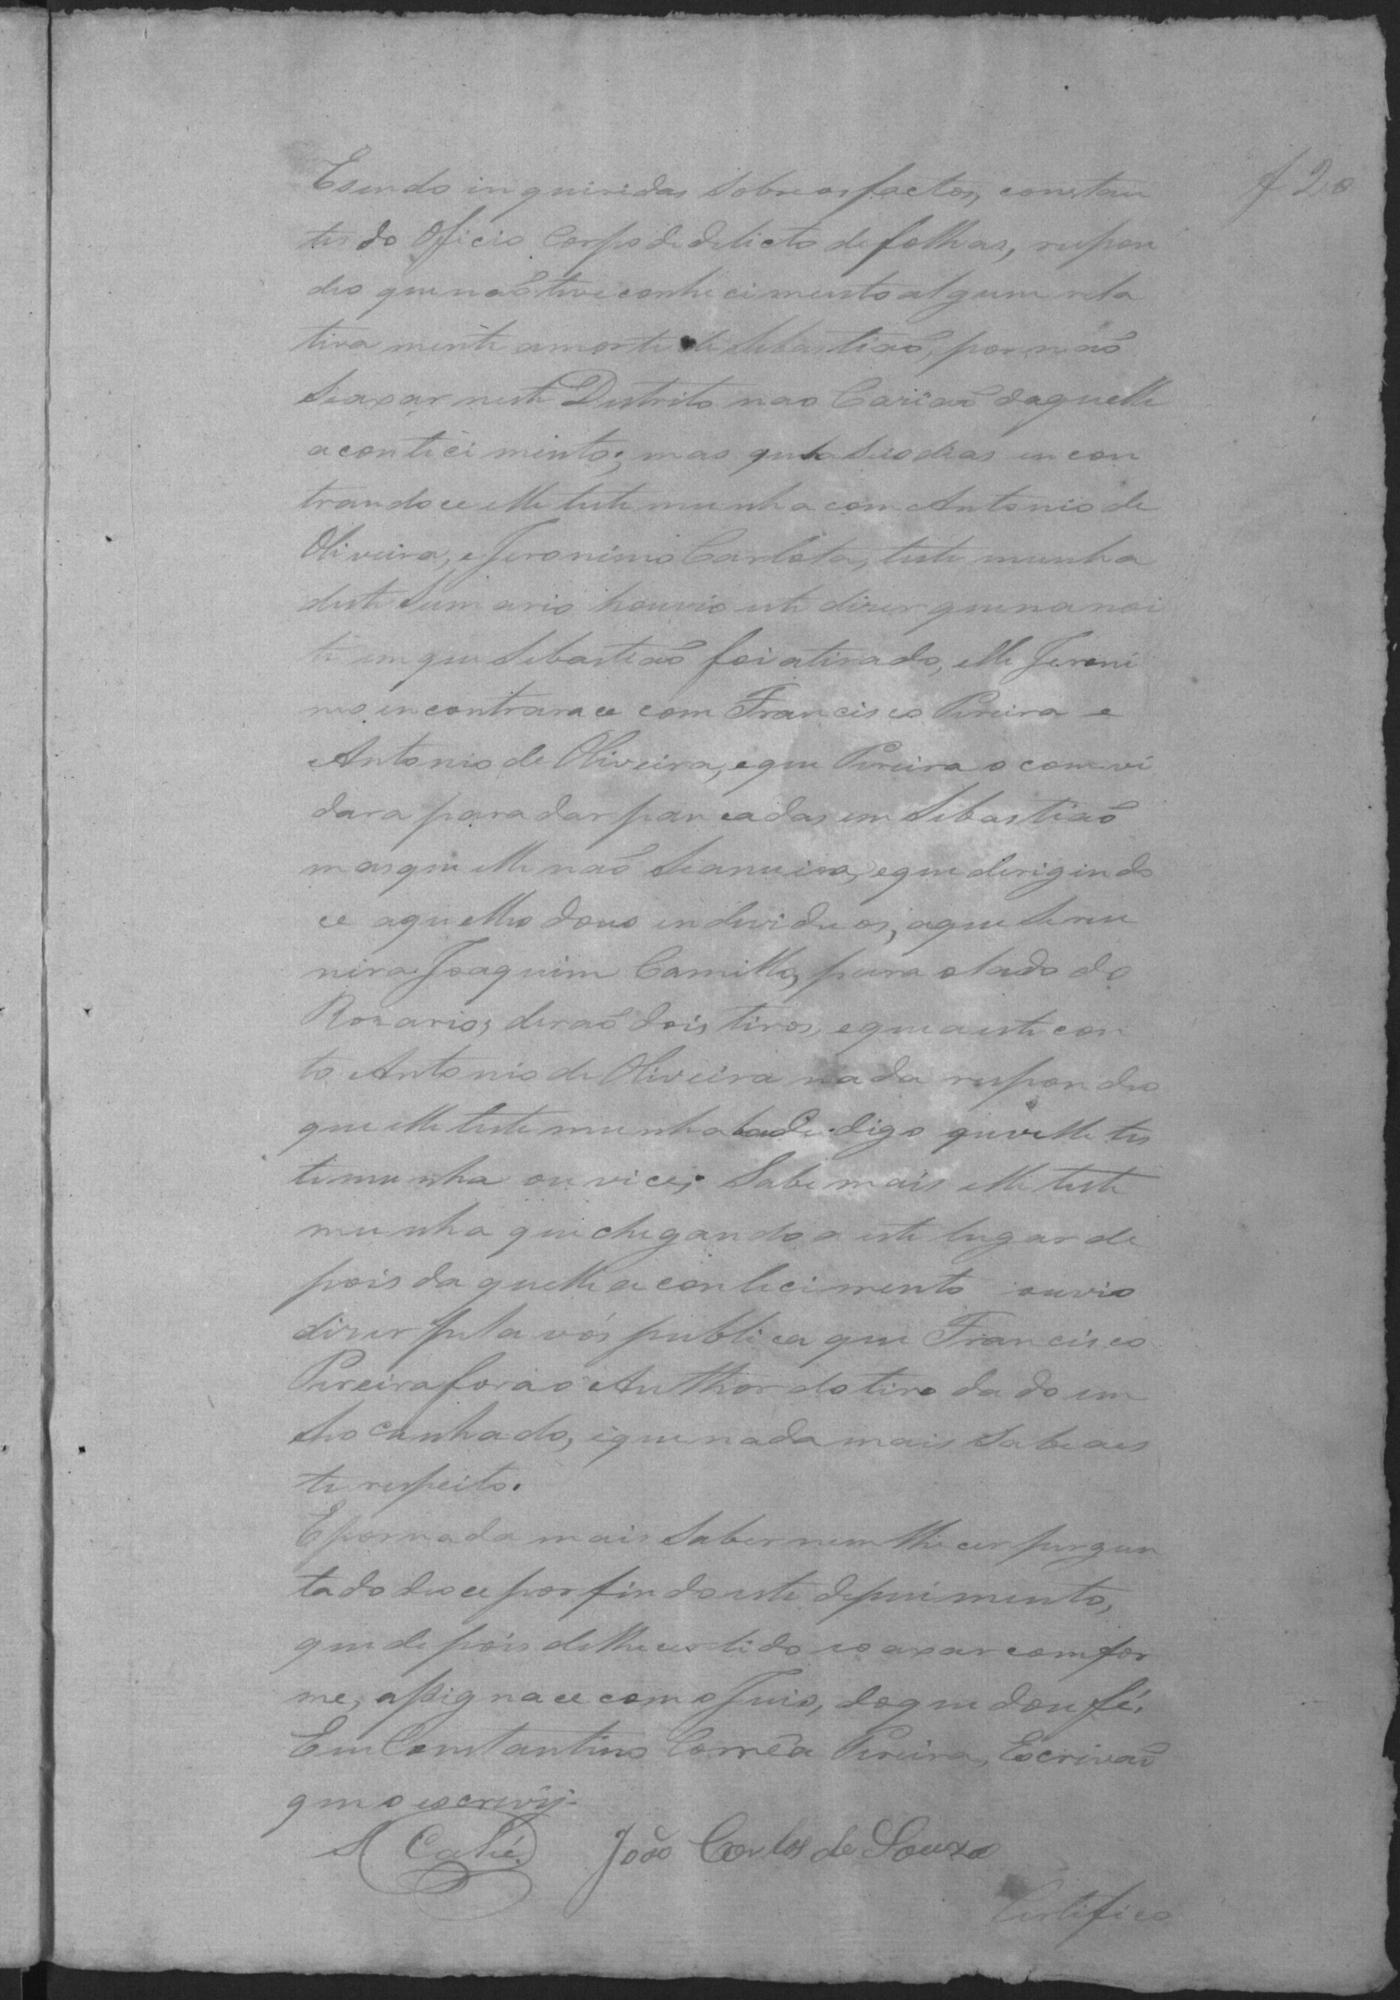 f 20
E sendo inquiridas sobre os factos, constan
tes do Oficio Corpo de delicto de folhas, respon
deo que não teve conhecimento algum rela
tivamente a morte de Sebastião, por não
se axar neste Distrito nao Cazião daquelle
acontecimento; mas que a seis dias encon
trandoce elle testemunha com Antonio de
Oliveira, e Jeronimo Carlota, testemunha
deste Sumario houvio este dizer que na noi
te em que Sebastião foi atirado, elle Jeroni
mo encontrarace com Francisco Pereira e
Antonio de Oliveira, e que Pereira o comvi
dara para dar pancadas em Sebastião
mas que elle não seanuira, e que derigindo
ce aquelles dous individuos, aque se reu
nira Joaquim Camillo, para o lado do
Rozario, derão dois tiros, e que a este con
to Antonio de Oliveira nada respondeo
que elle testemunha digo que elle tes
temunha ouvice; Sabe mais elle teste
munha que chegando a este lugar de
pois daquelle acontecimento ouvio
dizer pela vós publica que Francisco
Pereira fora o Author do tiro dado em
seo cunhado, e que nada mais sabe aes
te respeito.
E por nada mais saber nem lhe cer pergun
tado deoce por findo este depuimento,
que depois de lhe ser lido eo axar comfor
me, assignace com o Juis, do que dou fé.
Eu Constantino Corrêa Pereira, Escrivão
que o escrevy.
Calié. João Carlos de Souza
Certifico